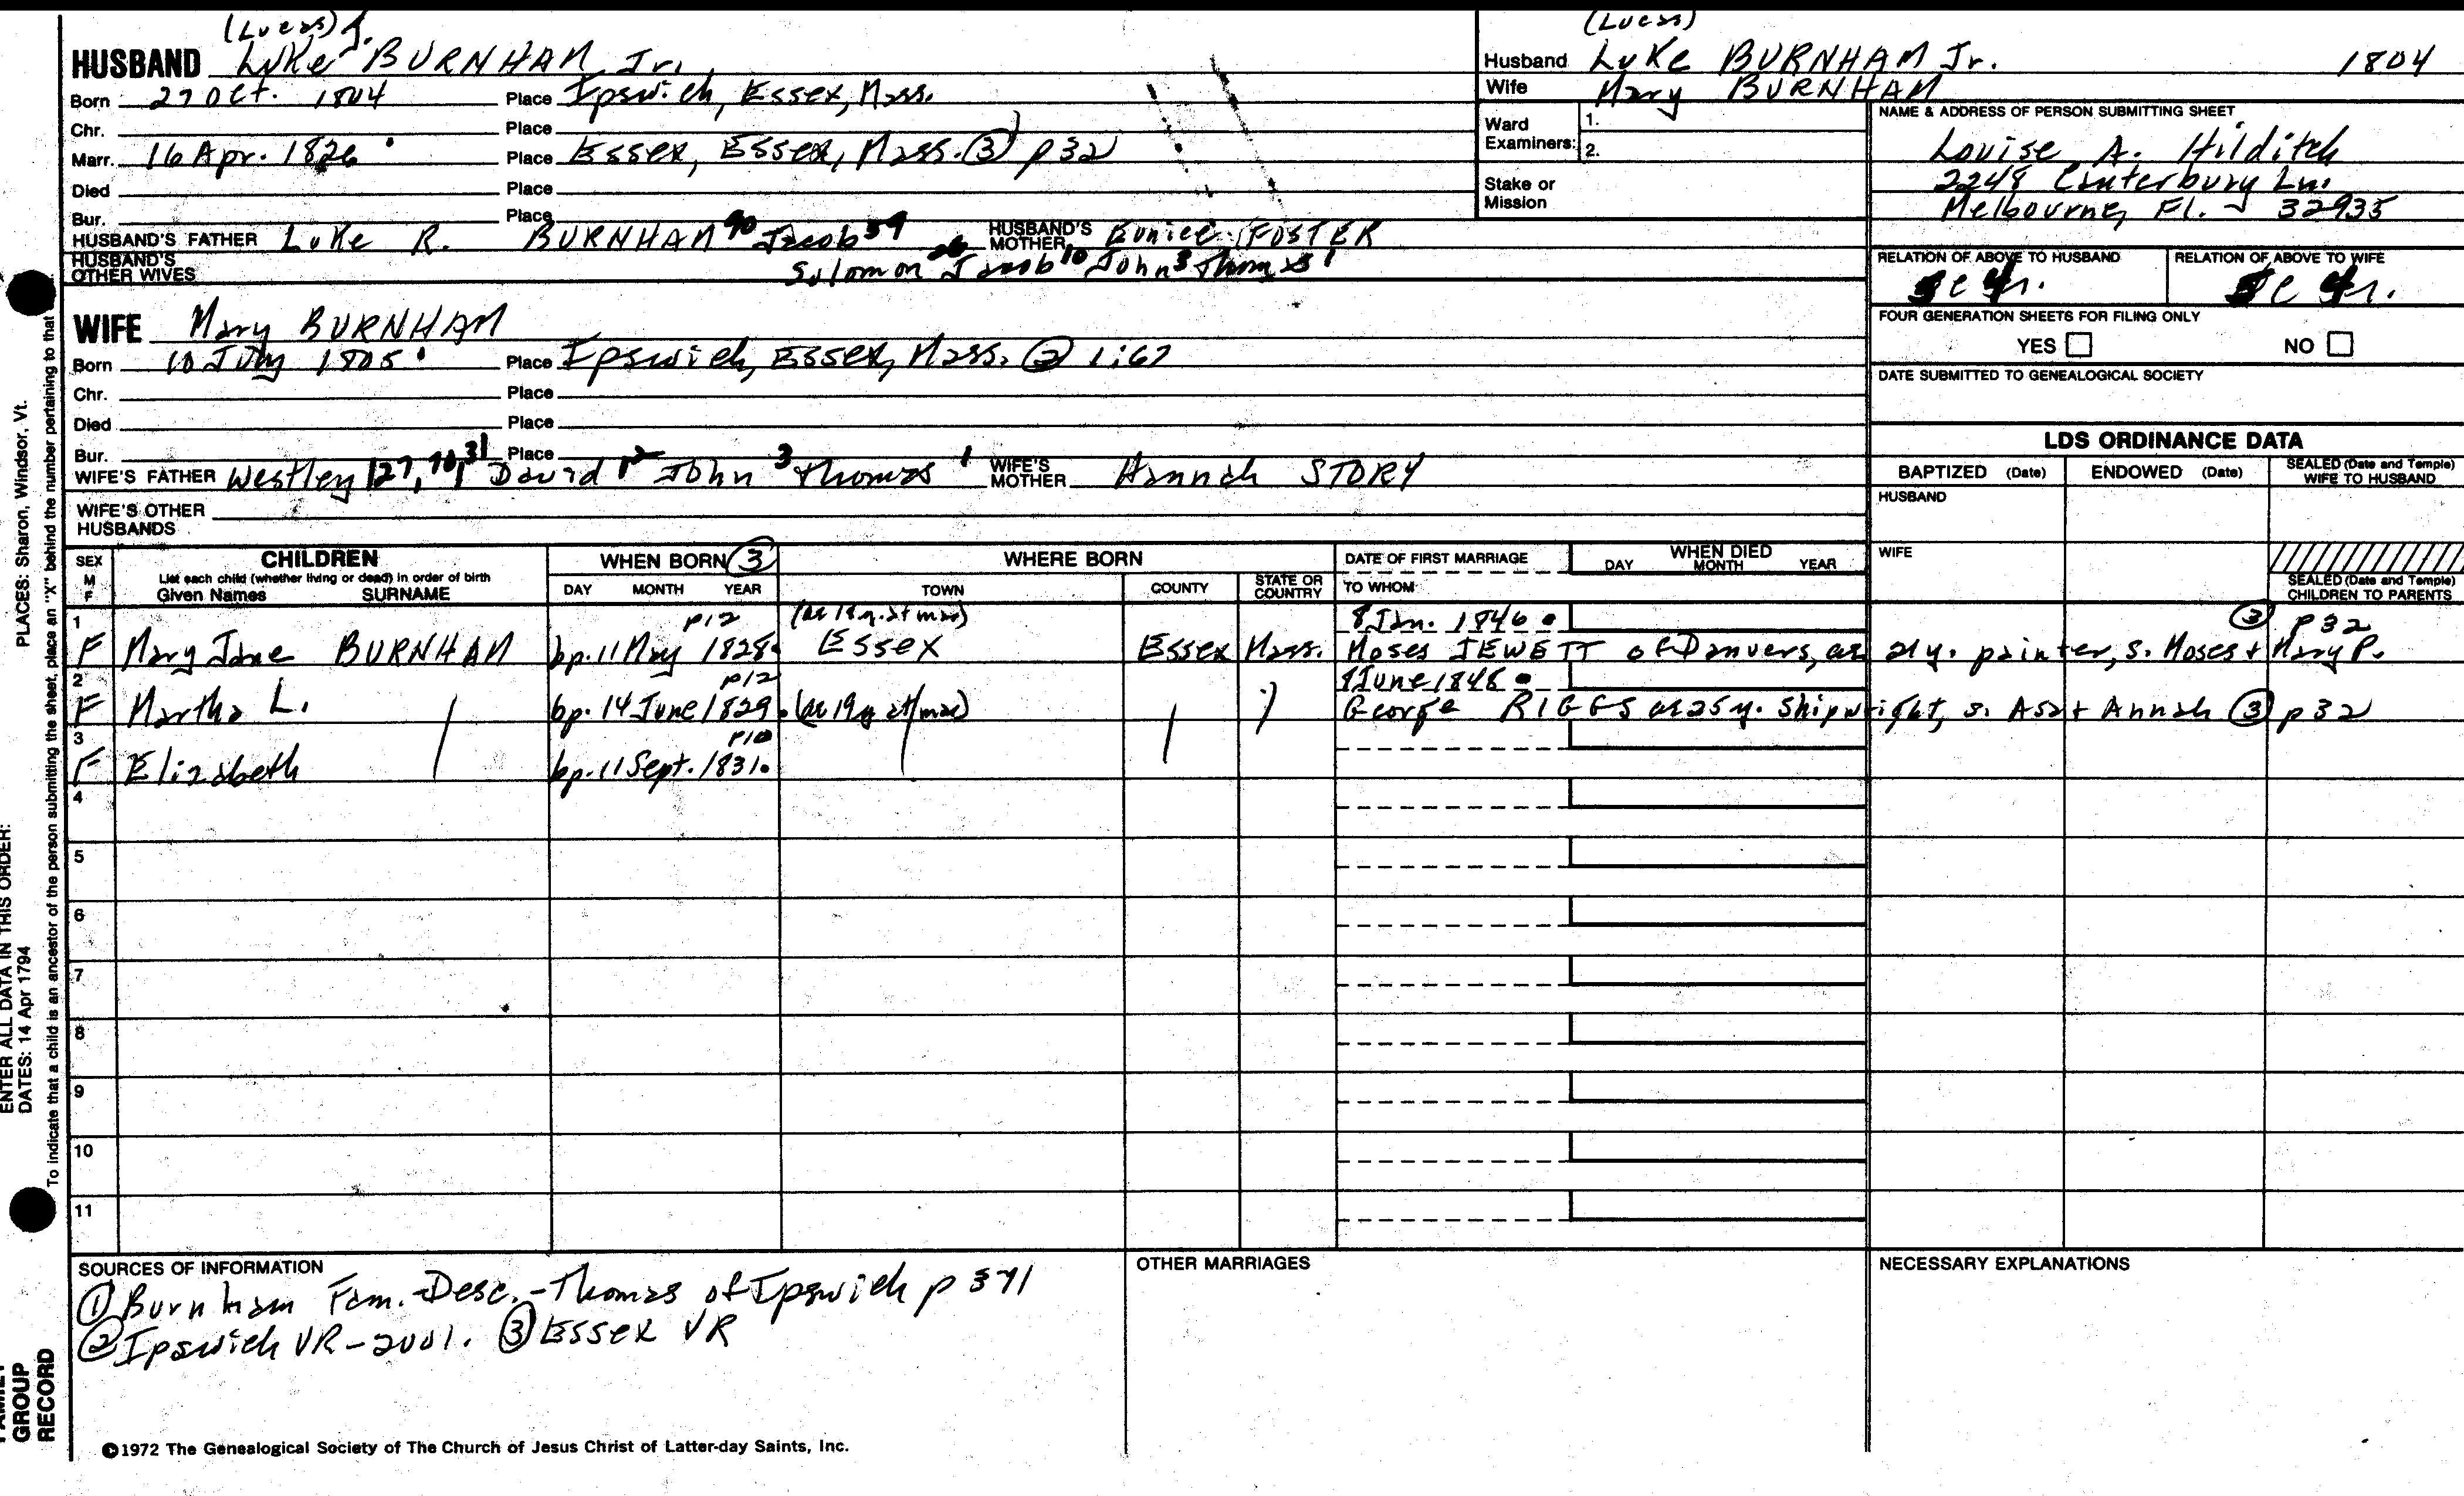 (Lucas) J.
HUSBAND Luke BURNHAM Jr.
Born 27 Oct. 1804 Place Ipswich, Essex, Mass.
Chr. Place
Marr. 16 Apr. 1826 Place Essex, Essex, Mass. ③ p32
Died Place
Bur. Place
HUSBAND'S FATHER Luke R. BURNHAM 90 Jacob 59 HUSBAND'S MOTHER Eunice FOSTER
HUSBAND'S OTHER WIVES Solomon 26 Jacob 10 John 3 Thomas 1
WIFE Mary BURNHAM
Born 10 July 1805 Place Ipswich, Essex, Mass. ② 1:67
Chr. Place
Died Place
Bur. Place
WIFE'S FATHER Westley 127, 70, 31 David 12 John 3 Thomas 1 WIFE'S MOTHER Hannah STORY
WIFE'S OTHER HUSBANDS
(Lucas)
Husband Luke BURNHAM Jr. 1804
Wife Mary BURNHAM
Ward Examiners: 1.
2.
Stake or Mission
NAME & ADDRESS OF PERSON SUBMITTING SHEET
Louise A. Hilditch
2248 Canterbury Ln.
Melbourne, Fl. 32935
RELATION OF ABOVE TO HUSBAND RELATION OF ABOVE TO WIFE
FOUR GENERATION SHEETS FOR FILING ONLY
YES NO
DATE SUBMITTED TO GENEALOGICAL SOCIETY
LDS ORDINANCE DATA
BAPTIZED (Date) ENDOWED (Date) SEALED (Date and Temple) WIFE TO HUSBAND
HUSBAND
WIFE
SEALED (Date and Temple) CHILDREN TO PARENTS
SEX M F CHILDREN WHEN BORN ③ WHERE BORN DATE OF FIRST MARRIAGE WHEN DIED
List each child (whether living or dead) in order of birth
Given Names SURNAME DAY MONTH YEAR TOWN COUNTY STATE OR COUNTRY TO WHOM DAY MONTH YEAR
1 p12 (ae 18 y. at mar) 8 Jan. 1846 ③ p32
F Mary Jane BURNHAM bp. 11 May 1828 Essex Essex Mass. Moses JEWETT of Danvers, ae 21y. painter, s. Moses + Mary P.
2 p12 8 June 1848
F Martha L. bp. 14 June 1829 (ae 19 y at mar) George RIGGS ae 25 y. Shipwright, s. Asa + Annah ③ p32
3 p10
F Elizabeth bp. 11 Sept. 1831
4
5
6
7
8
9
10
11
SOURCES OF INFORMATION
① Burnham Fam.-Desc.-Thomas of Ipswich p 371
② Ipswich VR-2001. ③ Essex VR
OTHER MARRIAGES
NECESSARY EXPLANATIONS
©1972 The Genealogical Society of The Church of Jesus Christ of Latter-day Saints, Inc.
PLACES: Sharon, Windsor, Vt.
ENTER ALL DATA IN THIS ORDER:
DATES: 14 Apr 1794
To indicate that a child is an ancestor of the person submitting the sheet, place an "X" behind the number pertaining to that
GROUP
RECORD